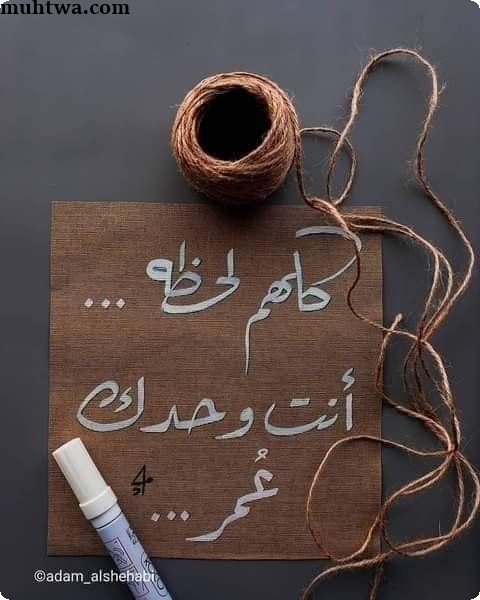 muhtwa.com
كلهم لحظه ...
أنت وحدك
عُمر ...
©adam_alshehabi